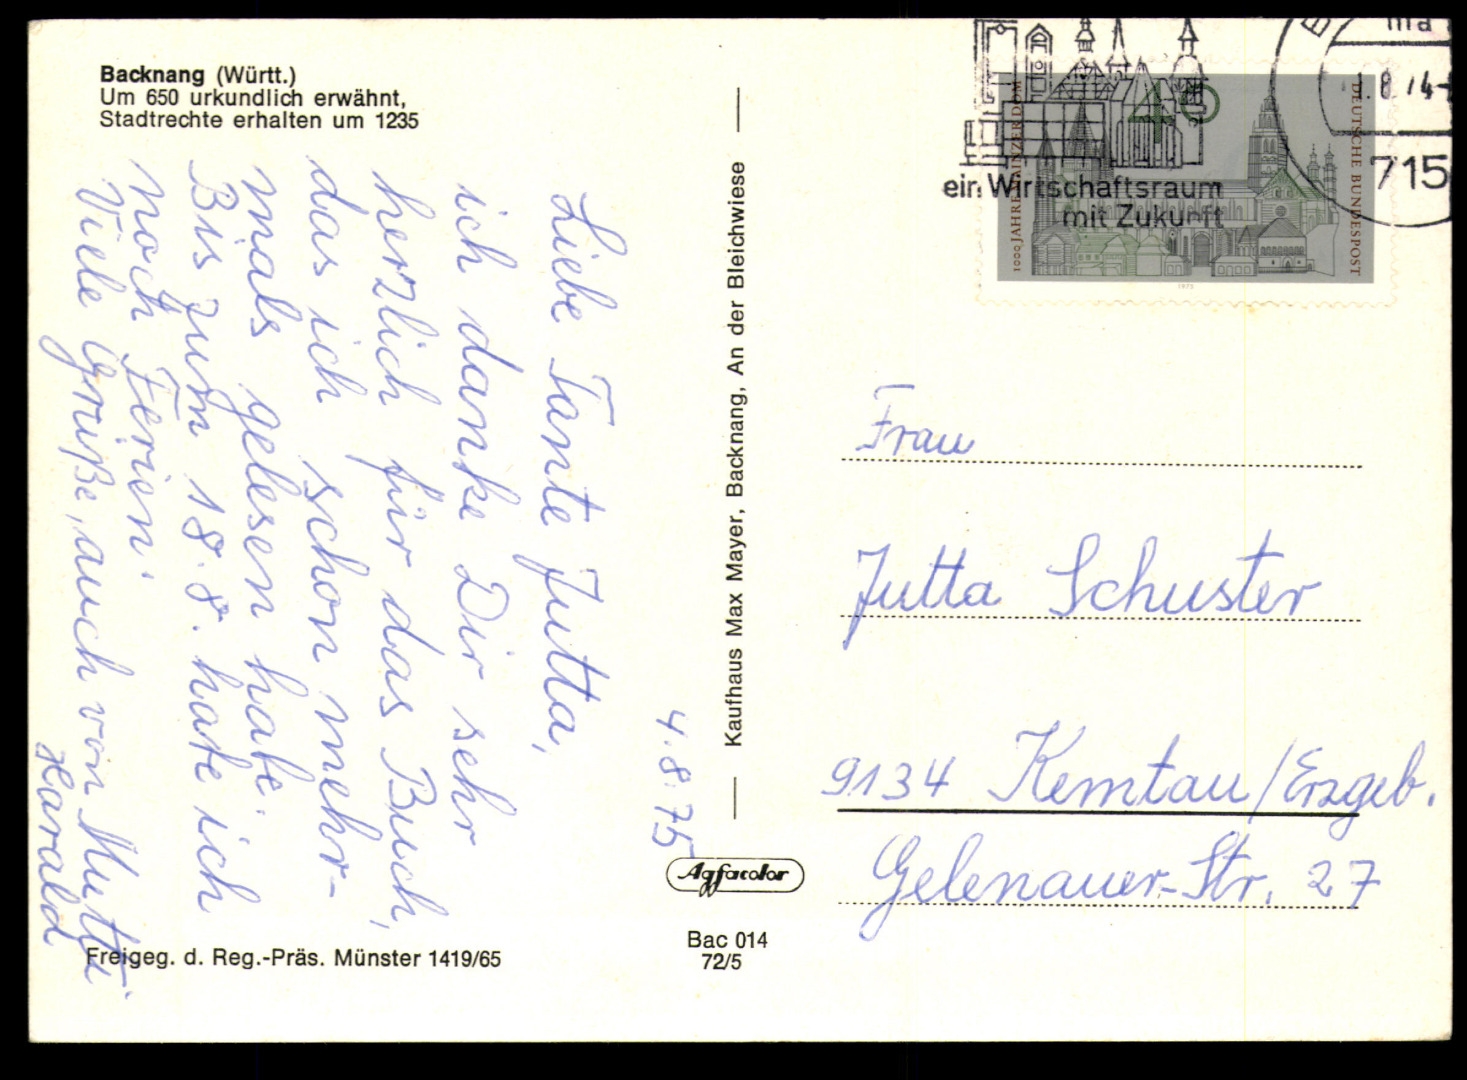 Backnang (Württ.)
Um 650 urkundlich erwähnt,
Stadtrechte erhalten um 1235
4.8.75
Liebe Tante Jutta,
ich danke Dir sehr
herzlich für das Buch,
das ich schon mehr-
mals gelesen habe.
Bis zum 18.8. habe ich
noch Ferien.
Viele Grüße, auch von Mutti
Harald
Freigeg. d. Reg.-Präs. Münster 1419/65
Kaufhaus Max Mayer, Backnang, An der Bleichwiese
Agfacolor
Bac 014
72/5
ein Wirtschaftsraum
mit Zukunft
715
40
1000 JAHRE MAINZER DOM
DEUTSCHE BUNDESPOST
1975
Frau
Jutta Schuster
9134 Kemtau/Erzgeb.
Gelenauer-Str. 27